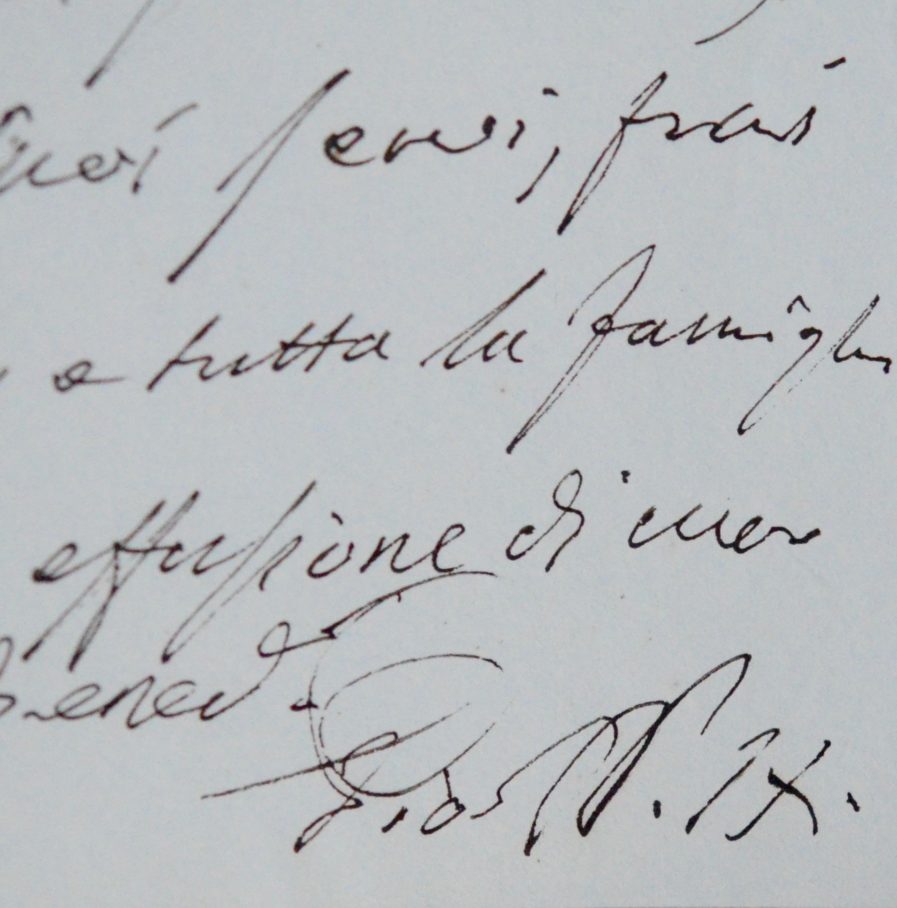 suoi servi, frati
e tutta la famiglia
effusione di cuore
Bened.
Pius P. IX.